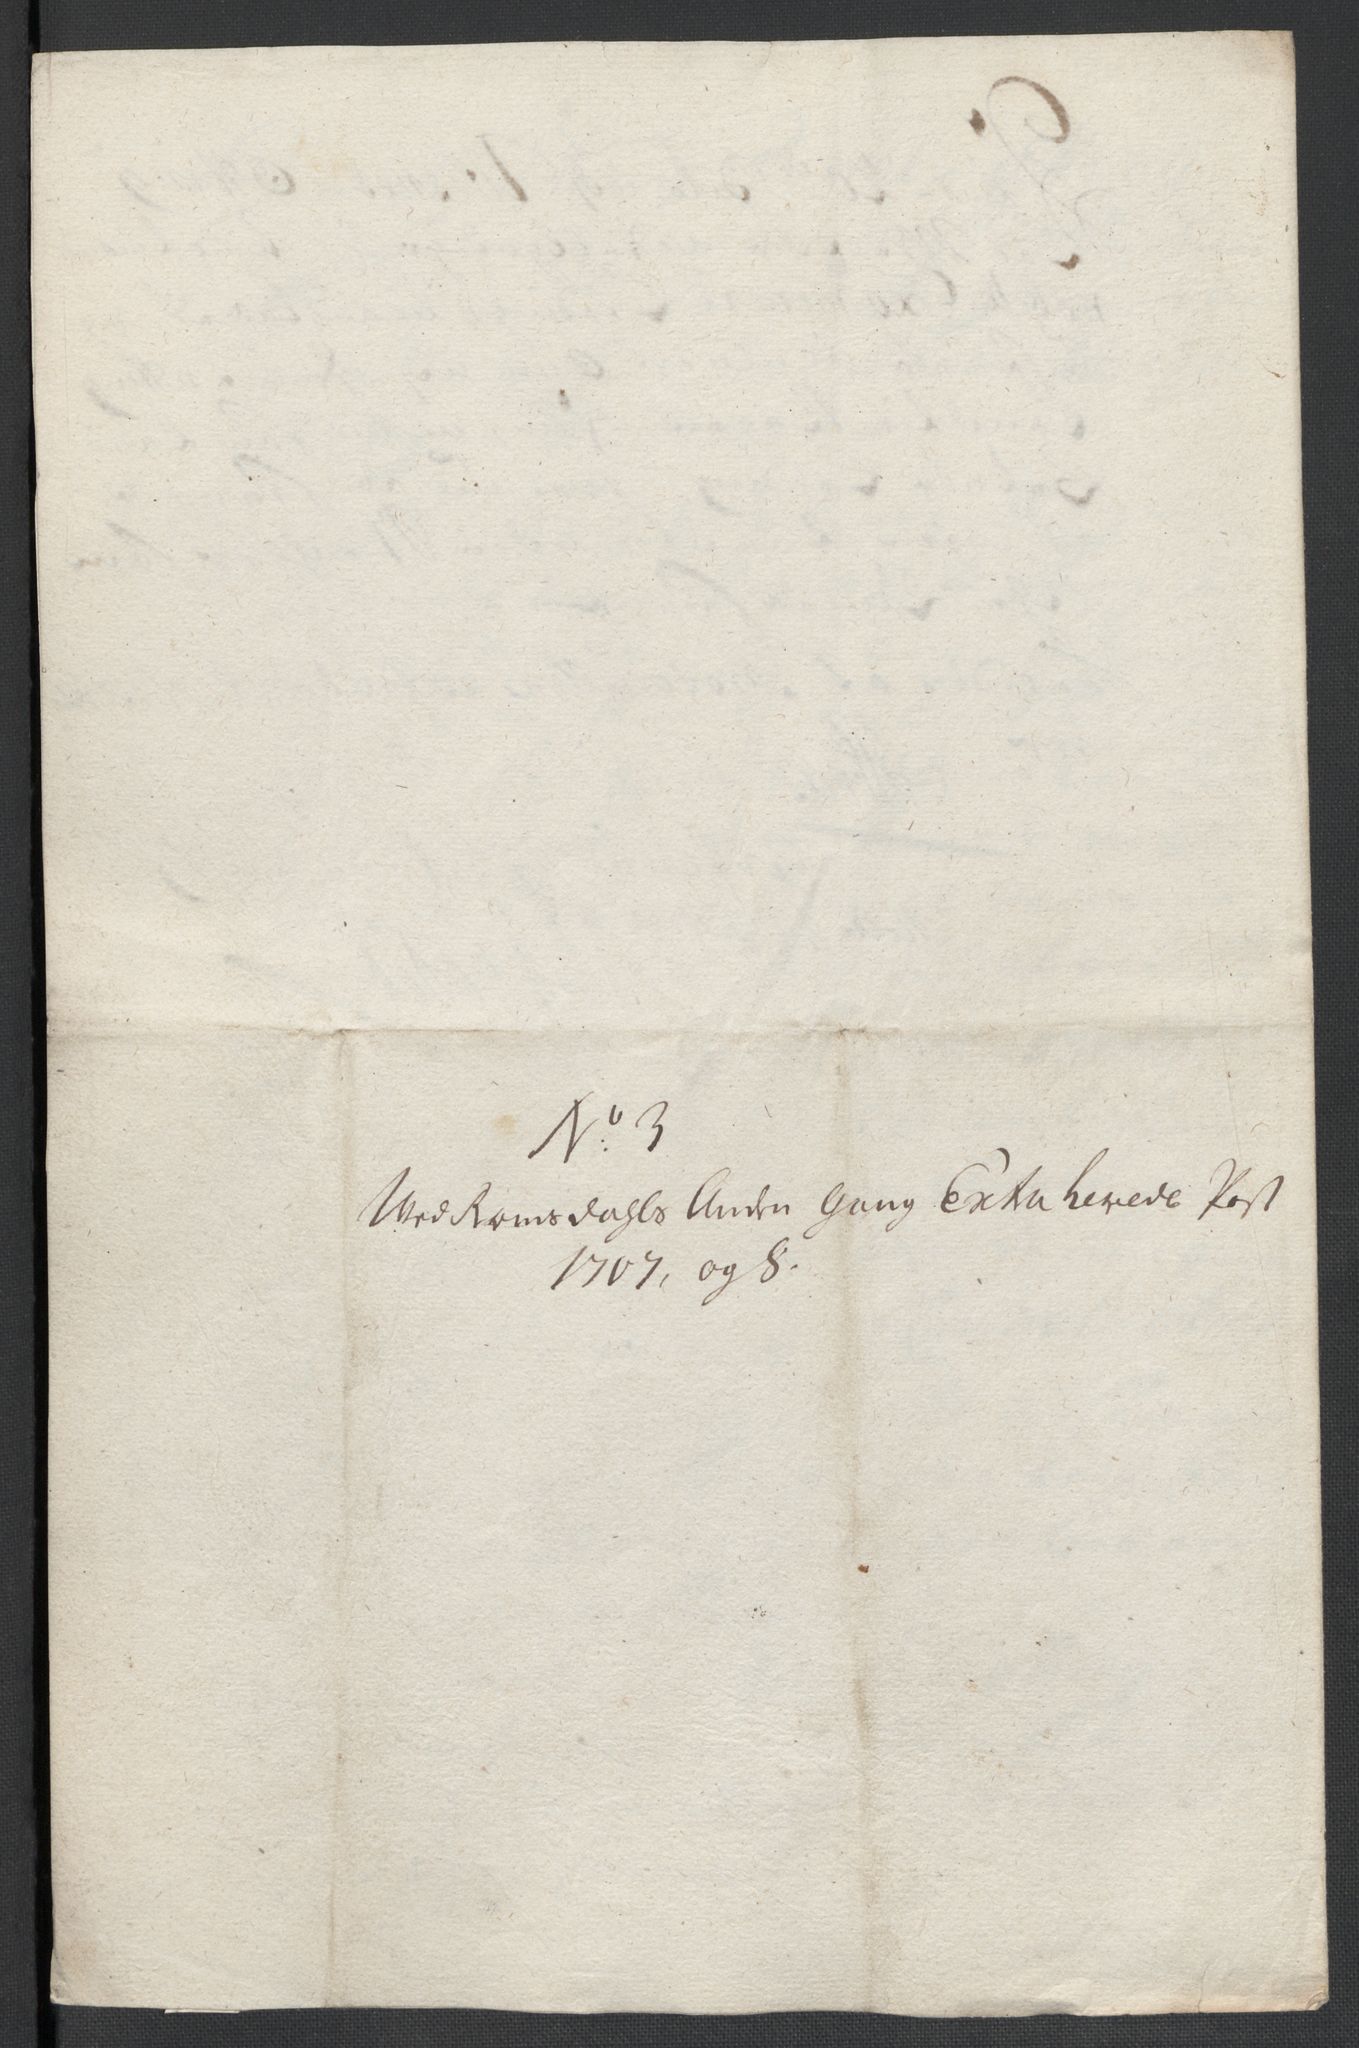 No: 3
Ved Romsdahls Anden Gang Extraherede Post
1707, og 8.